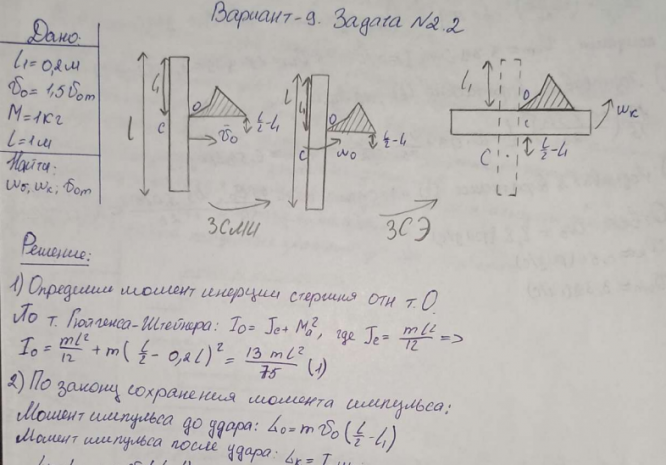 Вариант-9. Задача №2.2
Дано:
l₁=0,2м
υ₀=1,5υ₀т
M=1кг
l=1м
Найти:
ω₀, ωк, υ₀т
l
l₁
O
C
υ₀
l/2-l₁
ЗСМИ
l
l₁
O
C
ω₀
l/2-l₁
ЗСЭ
l₁
O
C
ωк
l/2-l₁
Решение:
1) Определим момент инерции стержня отн т. О.
По т. Гюйгенса-Штейнера: I₀= Jc+Ma², где Jc= ml²/12 =>
I₀= ml²/12 + m(l/2 - 0,2l)² = 13ml²/75 (1)
2) По закону сохранения момента импульса:
Момент импульса до удара: L₀=mυ₀(l/2-l₁)
Момент импульса после удара: Lк=